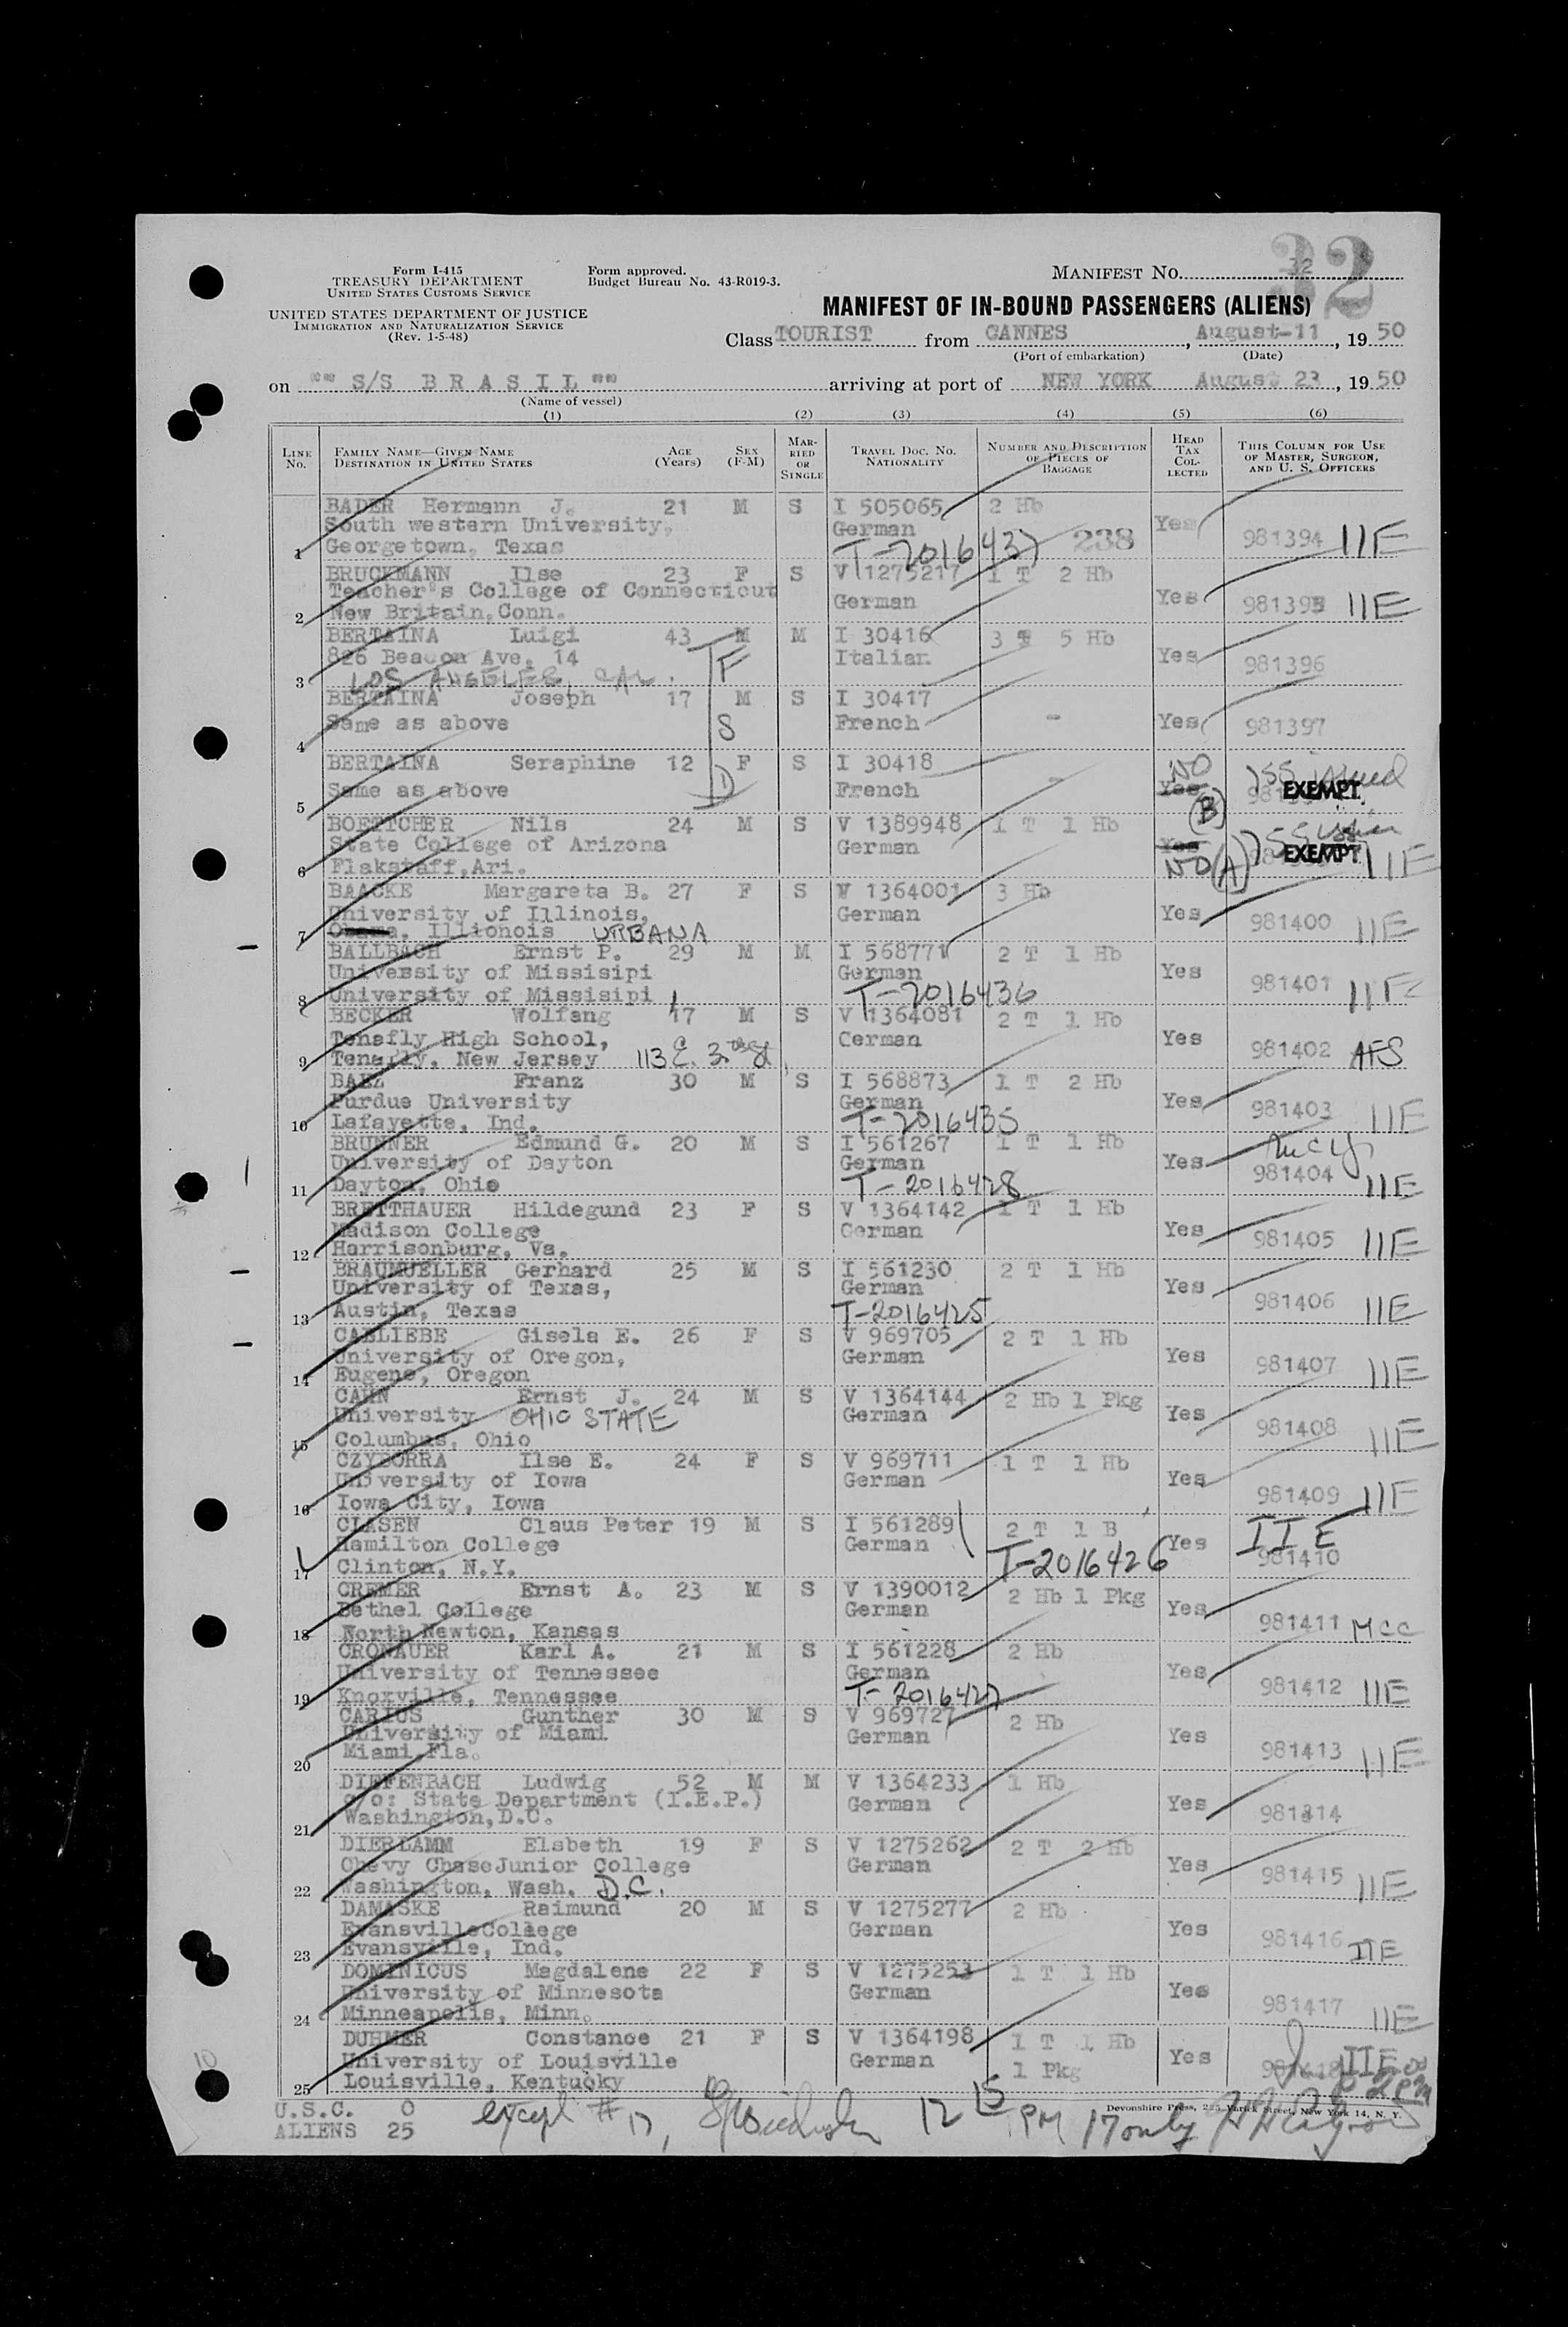 32
Form I-415
TREASURY DEPARTMENT
UNITED STATES CUSTOMS SERVICE
UNITED STATES DEPARTMENT OF JUSTICE
IMMIGRATION AND NATURALIZATION SERVICE
(Rev. 1-5-48)
Form approved.
Budget Bureau No. 43-R019-3.
MANIFEST NO. 32
MANIFEST OF IN-BOUND PASSENGERS (ALIENS)
Class TOURIST from CANNES, August-11, 19 50
(Port of embarkation) (Date)
on "" S/S B R A S I L "" arriving at port of NEW YORK August 23, 19 50
(Name of vessel)
(1) (2) (3) (4) (5) (6)
LINE No. FAMILY NAME—GIVEN NAME DESTINATION IN UNITED STATES AGE (Years) SEX (F-M) MARRIED OR SINGLE TRAVEL DOC. NO. NATIONALITY NUMBER AND DESCRIPTION OF PIECES OF BAGGAGE HEAD TAX COLLECTED THIS COLUMN FOR USE OF MASTER, SURGEON, AND U. S. OFFICERS
BADER Hermann J. 21 M S I 505065 2 Hb
South western University, German Yes
1 Georgetown, Texas T-2016437 238 981394 IIE
BRUCKMANN Ilse 23 F S V 1275217 1 T 2 Hb
Teacher's College of Connecticut German Yes
2 New Britain, Conn. 981395 IIE
BERTAINA Luigi 43 M M I 30416 3 T 5 Hb
826 Beacon Ave. 14 Italian Yes
3 LOS ANGELES CAL. F 981396
BERTAINA Joseph 17 M S I 30417
Same as above French - Yes
4 S 981397
BERTAINA Seraphine 12 F S I 30418 NO
Same as above French - Yes EXEMPT
5 D (B)
BOETTCHER Nils 24 M S V 1389948 1 T 1 Hb
State College of Arizona German Yes EXEMPT
6 Flakstaff, Ari. NO (A) IIE
BAACKE Margareta B. 27 F S V 1364001 3 Hb
University of Illinois, German Yes
7 Illionois URBANA 981400 IIE
BALLBACH Ernst P. 29 M M I 568771 2 T 1 Hb
University of Missisipi German Yes
8 University of Missisipi T-2016436 981401 IIE
BECKER Wolfang 17 M S V 1364081 2 T 1 Hb
Tenafly High School, Cerman Yes
9 Tenafly, New Jersey 981402 AFS
BAEZ Franz 30 M S I 568873 1 T 2 Hb
Purdue University German Yes
10 Lafayette, Ind. T-2016435 981403 IIE
BRUNNER Edmund G. 20 M S I 561267 1 T 1 Hb
University of Dayton German Yes
11 Dayton, Ohio T-2016428 981404 IIE
BREITHAUER Hildegund 23 F S V 1364142 1 T 1 Hb
Madison College German Yes
12 Harrisonburg, Va. 981405 IIE
BRAUMUELLER Gerhard 25 M S I 561230 2 T 1 Hb
University of Texas, German Yes
13 Austin, Texas T-2016425 981406 IIE
CARLIEBE Gisela E. 26 F S V 969705 2 T 1 Hb
University of Oregon, German Yes
14 Eugene, Oregon 981407 IIE
CAHN Ernst J. 24 M S V 1364144 2 Hb 1 Pkg
University OHIO STATE German Yes
15 Columbus, Ohio 981408 IIE
CZYBORRA Ilse E. 24 F S V 969711 1 T 1 Hb
University of Iowa German Yes
16 Iowa City, Iowa 981409 IIE
CLASEN Claus Peter 19 M S I 561289 2 T 1 B
Hamilton College German Yes IIE
17 Clinton, N.Y. T-2016426 981410
CREMER Ernst A. 23 M S V 1390012 2 Hb 1 Pkg
Bethel College German Yes
18 North Newton, Kansas 981411 MCC
CRONAUER Karl A. 21 M S I 561228 2 Hb
University of Tennessee German Yes
19 Knoxville, Tennessee T-2016427 981412 IIE
CARIUS Gunther 30 M S V 969727 2 Hb
University of Miami German Yes
20 Miami, Fla. 981413 IIE
DIEFENBACH Ludwig 52 M M V 1364233 1 Hb
c/o: State Department (I.E.P.) German Yes
21 Washington, D.C. 981414
DIERLAMM Elsbeth 19 F S V 1275262 2 T 2 Hb
Chevy Chase Junior College German Yes
22 Washington, Wash. D.C. 981415 IIE
DAMASKE Raimund 20 M S V 1275277 2 Hb
Evansville College German Yes
23 Evansville, Ind. 981416 IIE
DOMINICUS Magdalene 22 F S V 1275253 1 T 1 Hb
University of Minnesota German Yes
24 Minneapolis, Minn. 981417 IIE
DUHMER Constance 21 F S V 1364198 1 T 1 Hb
University of Louisville German 1 Pkg Yes
25 Louisville, Kentucky IIE
10
U.S.C. 0
ALIENS 25
except # 17, 12 15 PM 17 only
Devonshire Press, 225 Varick Street, New York 14, N. Y.